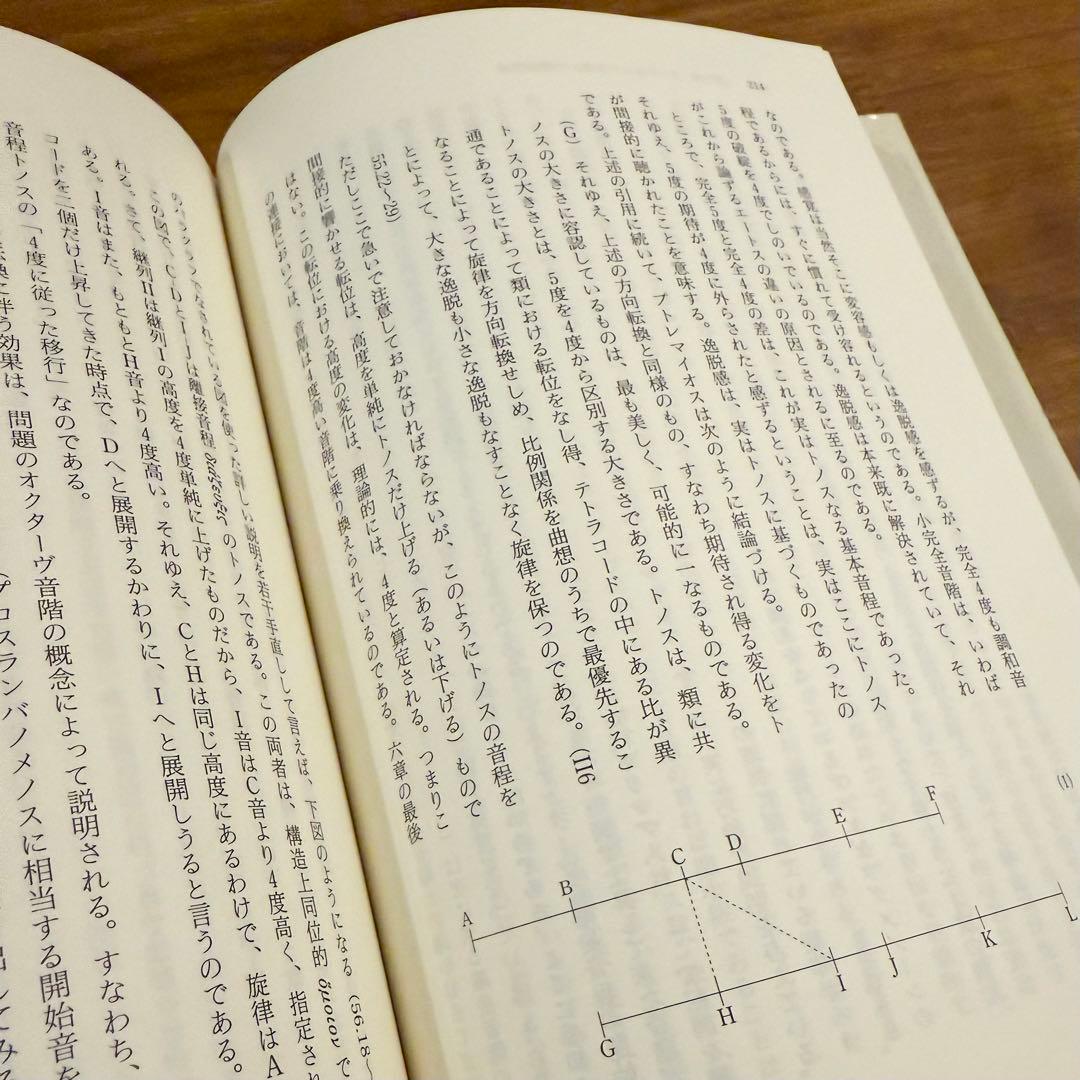 214
なのである。聴覚は当然そこに変容感もしくは逸脱感を感ずるが、完全4度も調和音
程であるからには、すぐに慣れて受け容れるというのである。小完全音階は、いわば
5度の破綻を4度でしのいでいるのである。逸脱感は本来既に解決されていて、それ
がこれから論ずるエートスの違いの原因とされるに至るのである。
ところで、完全5度と完全4度の差は、これが実はトノスなる基本音程であった。
それゆえ、5度の期待が4度に外らされたと感ずるということは、実はここにトノス
が間接的に聴かれたことを意味する。逸脱感は、実はトノスに基づくものであったの
である。上述の引用に続いて、プトレマイオスは次のように結論づける。
(G) それゆえ、上述の方向転換と同様のもの、すなわち期待され得る変化をト
ノスの大きさに容認しているものは、最も美しく、可能的に一なるものである。
トノスの大きさとは、5度を4度から区別する大きさである。トノスは、類に共
通であることによって類における転位をなし得、テトラコードの中にある比が異
なることによって旋律を方向転換せしめ、比例関係を曲想のうちで最優先するこ
とによって、大きな逸脱も小さな逸脱もなすことなく旋律を保つのである。(116
55.22〜29)
ただしここで急いで注意しておかなければならないが、このようにトノスの音程を
間接的に響かせる転位は、高度を単純にトノスだけ上げる(あるいは下げる)もので
はない。この転位における高度の変化は、理論的には、4度と算定される。つまりこ
においては、音階は4度高い音階に乗り換えられているのである。六章の最後
(1)
A B C D E F
G H I J K L
を使った詳しい説明を若干手直しして言えば、下図のようになる (56.18〜
この図で、C-DとI-Jは離接音程 のトノスである。この両者は、構造上同位的 ὅμοιον で
れる。さて、継列IIは継列Iの高度を4度単純に上げたものだから、I音はC音より4度高く、指定され
ある。I音はまた、もともとH音より4度高い。それゆえ、CとHは同じ高度にあるわけで、旋律はA
コードを二個だけ上昇してきた時点で、Dへと展開するかわりに、Iへと展開しうると言うのである。
音程トノスの「4度に従った移行」なのである。
に伴う効果は、問題のオクターヴ音階の概念によって説明される。すなわち、
(プロスランバノメノスに相当する開始音を
出してみ